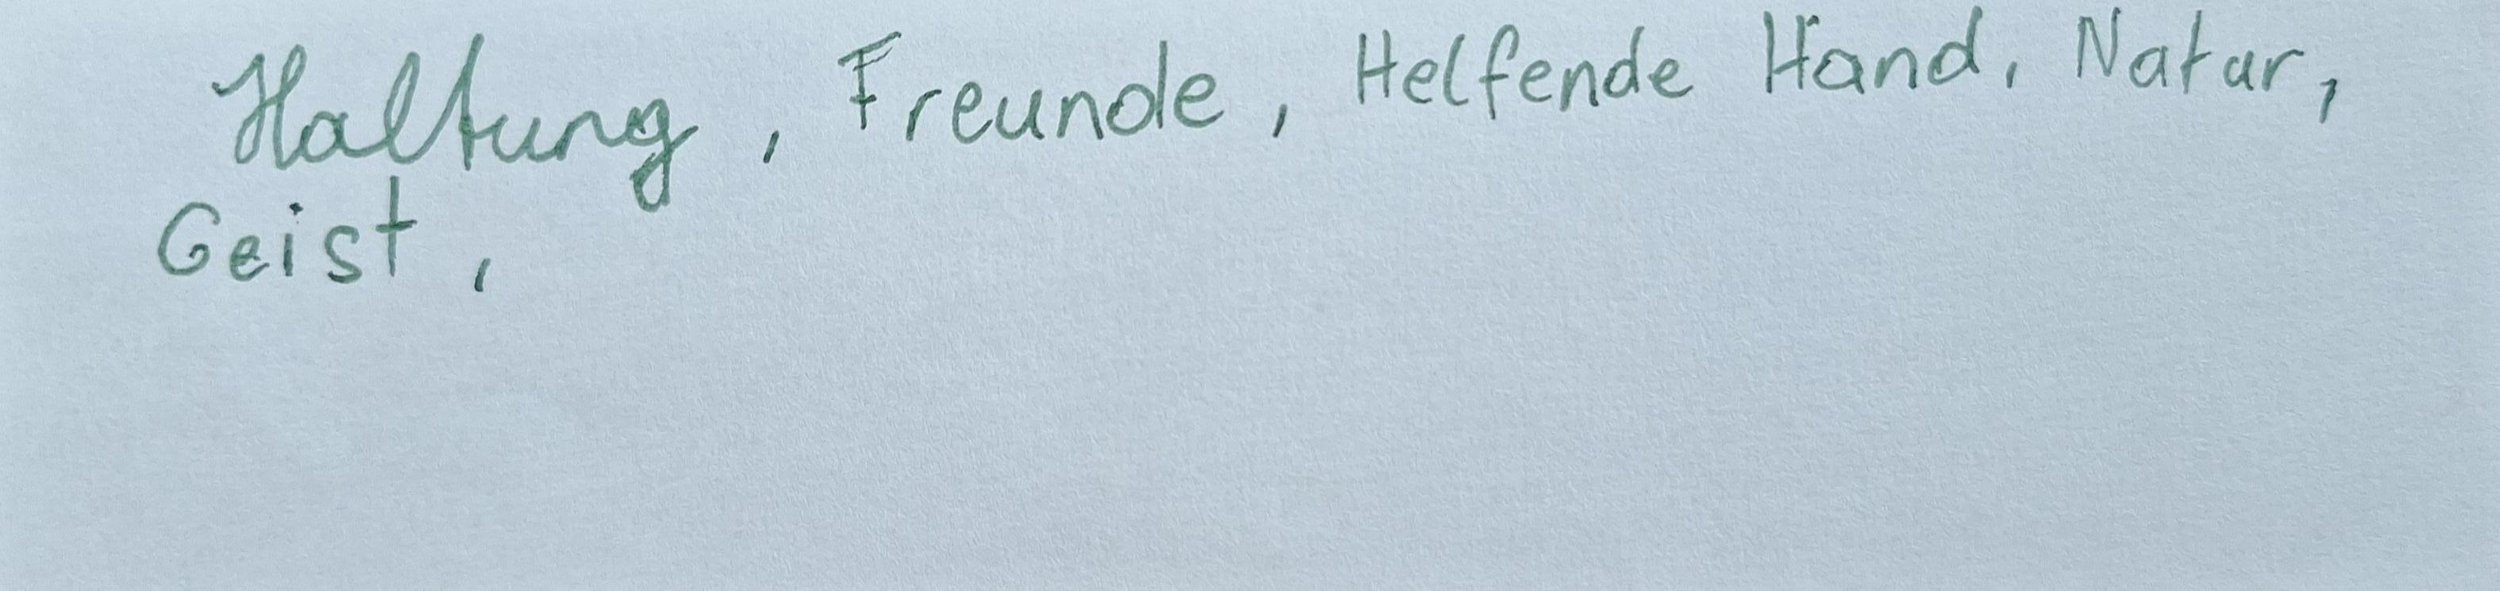 Haltung, Freunde, Helfende Hand, Natur,
Geist,